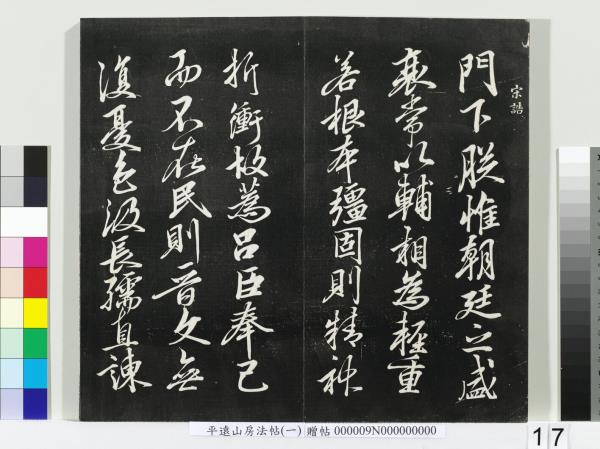 宋誥
門下朕惟朝廷之盛
衰常以輔相為輕重
若根本彊固則精神
折衝故蒍呂臣奉己
而不在民則晉文無
復憂色汲長孺直諫
平遠山房法帖(一) 贈帖 000009N000000000
17